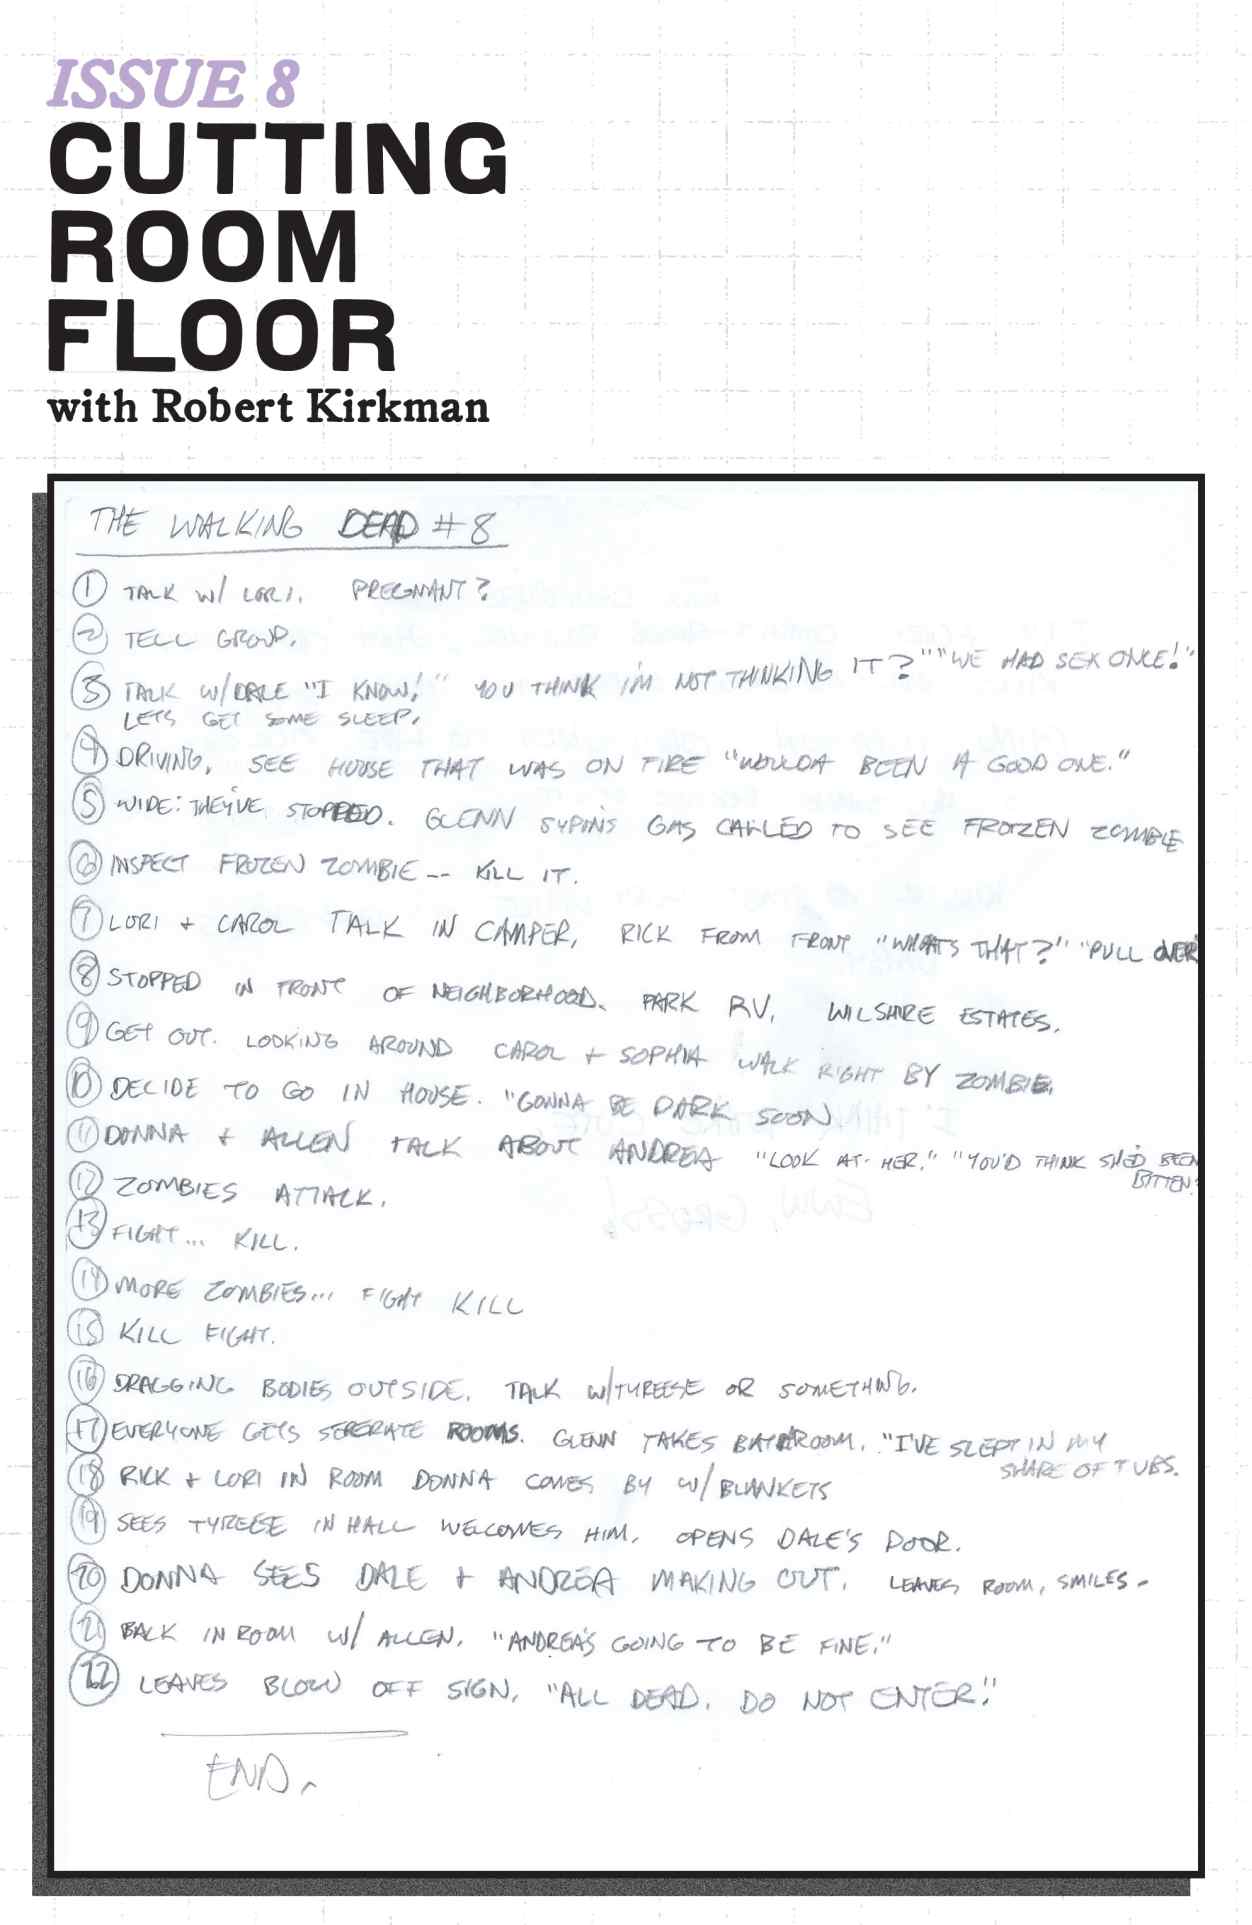 ISSUE 8
CUTTING
ROOM
FLOOR
with Robert Kirkman
THE WALKING DEAD #8
1 TALK W/ LORI. PREGNANT?
2 TELL GROUP.
3 TALK W/DALE "I KNOW!" YOU THINK I'M NOT THINKING IT?" "WE HAD SEX ONCE!"
LETS GET SOME SLEEP.
4 DRIVING, SEE HOUSE THAT WAS ON FIRE "WOULDA BEEN A GOOD ONE."
5 WIDE: THEY'VE STOPPED. GLENN SYPINS GAS CALLED TO SEE FROZEN ZOMBIE
6 INSPECT FROZEN ZOMBIE -- KILL IT.
7 LORI + CAROL TALK IN CAMPER, RICK FROM FRONT "WHAT'S THAT?" "PULL OVER"
8 STOPPED IN FRONT OF NEIGHBORHOOD. PARK RV. WILSHIRE ESTATES.
9 GET OUT. LOOKING AROUND CAROL + SOPHIA WALK RIGHT BY ZOMBIE.
10 DECIDE TO GO IN HOUSE. "GONNA BE DARK SOON
11 DONNA + ALLEN TALK ABOUT ANDREA "LOOK AT HER." "YOU'D THINK SHE'D BEEN
BITTEN."
12 ZOMBIES ATTACK.
13 FIGHT... KILL.
14 MORE ZOMBIES... FIGHT KILL
15 KILL FIGHT.
16 DRAGGING BODIES OUTSIDE. TALK W/TYREESE OR SOMETHING.
17 EVERYONE GETS SEPERATE ROOMS. GLENN TAKES BATHROOM. "I'VE SLEPT IN MY
SHARE OF TUBS.
18 RICK + LORI IN ROOM DONNA COMES BY W/BLANKETS
19 SEES TYREESE IN HALL WELCOMES HIM. OPENS DALE'S DOOR.
20 DONNA SEES DALE + ANDREA MAKING OUT. LEAVES ROOM, SMILES -
21 BACK IN ROOM W/ ALLEN. "ANDREA'S GOING TO BE FINE."
22 LEAVES BLOW OFF SIGN, "ALL DEAD. DO NOT ENTER!"
END.